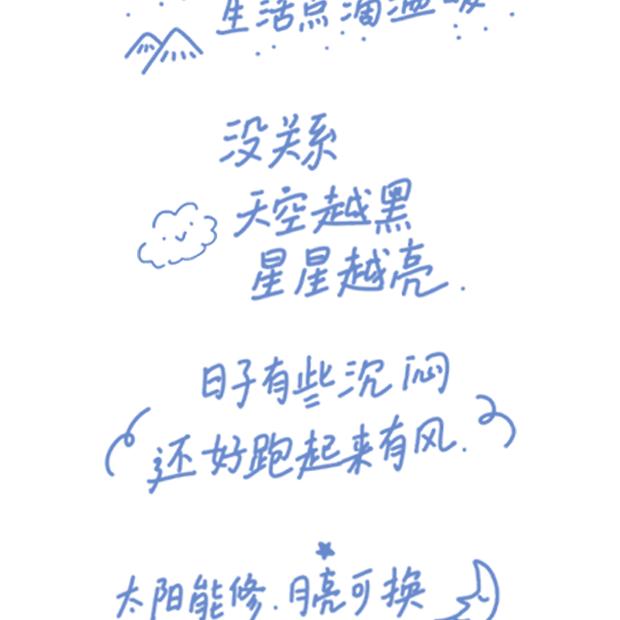 生活点滴温暖
没关系
天空越黑
星星越亮.
日子有些沉闷
还好跑起来有风.
太阳能修.月亮可换